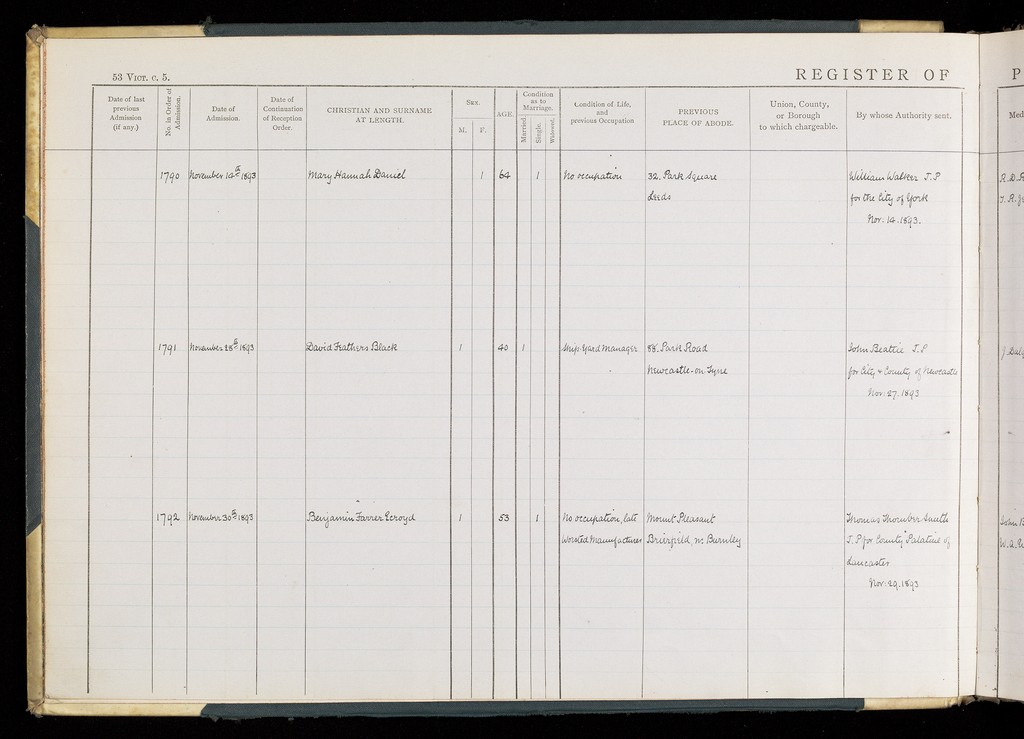 53 VICT. c. 5.
REGISTER OF
Date of last previous Admission (if any.)
No. in Order of Admission.
Date of Admission.
Date of Continuation of Reception Order.
CHRISTIAN AND SURNAME AT LENGTH.
SEX.
M.
F.
AGE.
Condition as to Marriage.
Married.
Single.
Widowed.
Condition of Life, and previous Occupation
PREVIOUS PLACE OF ABODE.
Union, County, or Borough to which chargeable.
By whose Authority sent.
P
Med
1790 November 14th 1893 Mary Hannah Daniel 1 64 1 No occupation 32. Park Square William Walker J.P
Leeds for the City of York
Nov. 14. 1893.
1791 November 28th 1893 David Feathers Black 1 40 1 Ship-Yard Manager 88. Park Road John Beattie J.P
Newcastle-on-Tyne for City & County of Newcastle
Nov. 27. 1893
1792 November 30th 1893 Benjamin Farrer Ecroyd 1 53 1 No occupation, late Mount Pleasant Thomas Thornber Smith
Worsted Manufacturer Brierfield, nr. Burnley J.P for County Palatine of
Lancaster
Nov. 29. 1893